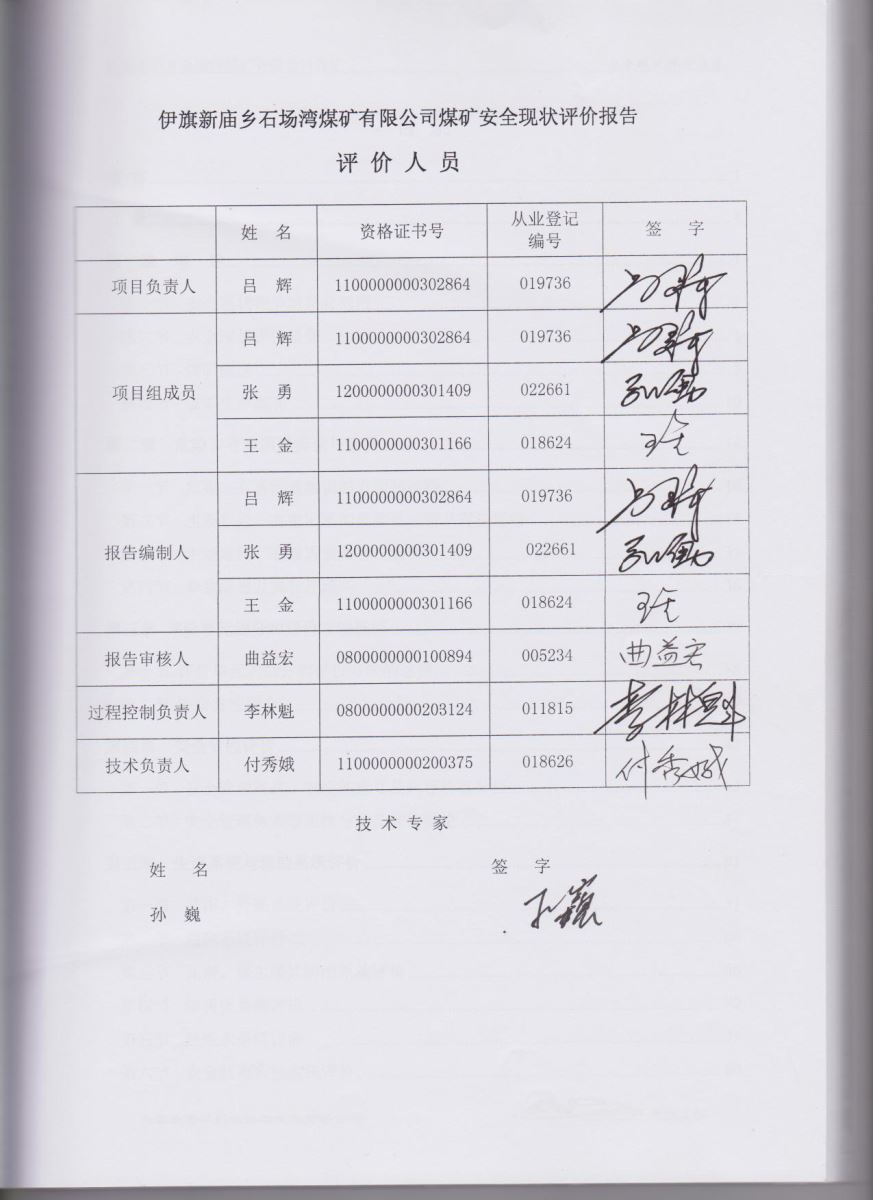 伊旗新庙乡石场湾煤矿有限公司煤矿安全现状评价报告
评价人员
姓 名 资格证书号 从业登记编号 签 字
项目负责人 吕 辉 1100000000302864 019736 吕辉
项目组成员 吕 辉 1100000000302864 019736 吕辉
张 勇 1200000000301409 022661 张勇
王 金 1100000000301166 018624 王金
报告编制人 吕 辉 1100000000302864 019736 吕辉
张 勇 1200000000301409 022661 张勇
王 金 1100000000301166 018624 王金
报告审核人 曲益宏 0800000000100894 005234 曲益宏
过程控制负责人 李林魁 0800000000203124 011815 李林魁
技术负责人 付秀娥 1100000000200375 018626 付秀娥
技术专家
姓 名 签 字
孙 巍 孙巍